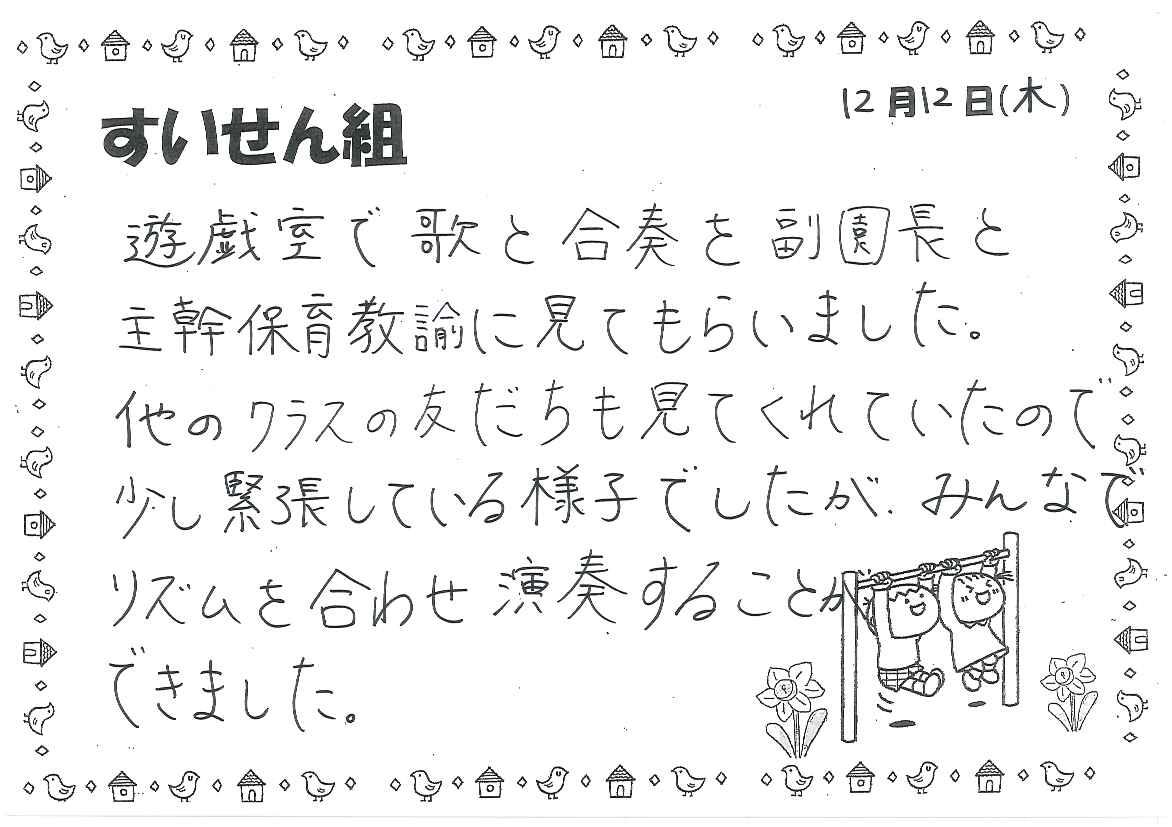 12月12日(木)
すいせん組
遊戯室で歌と合奏を副園長と
主幹保育教諭に見てもらいました。
他のクラスの友だちも見てくれていたので
少し緊張している様子でしたが、みんなで
リズムを合わせ演奏することが
できました。